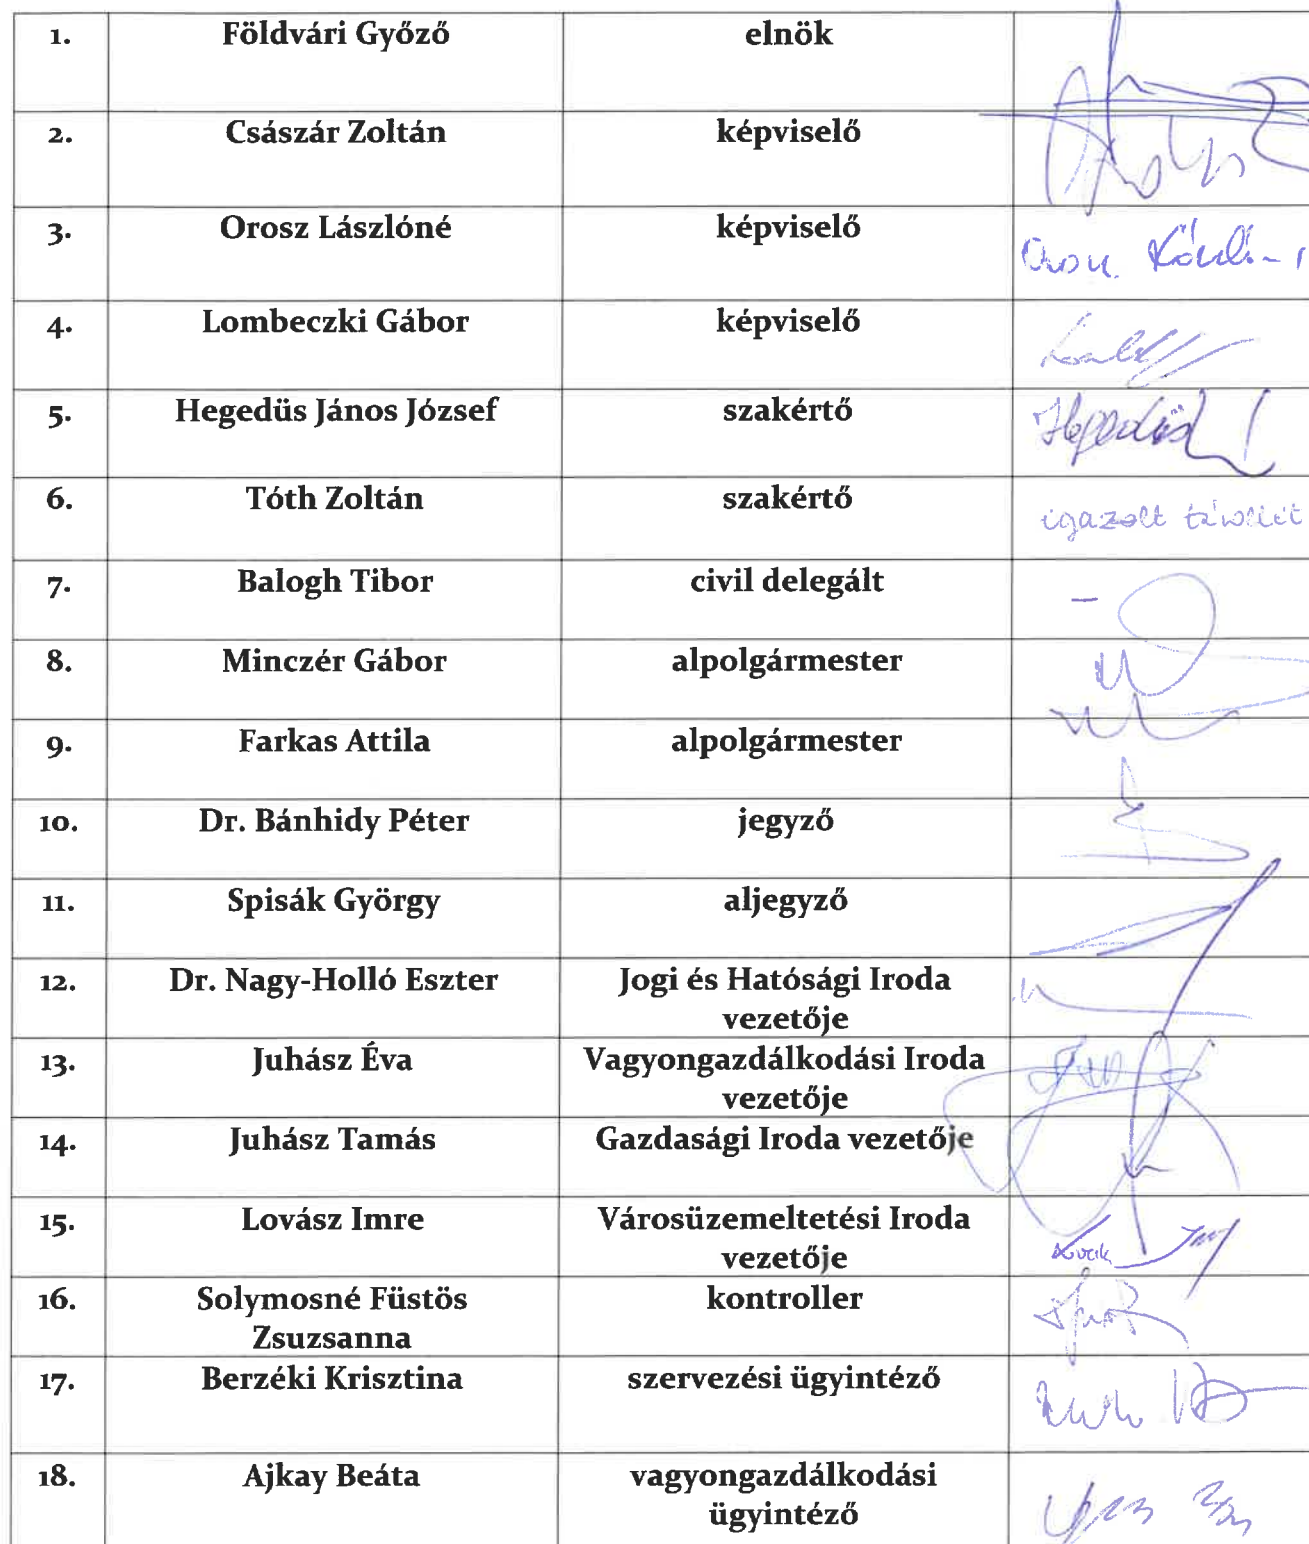 1. Földvári Győző elnök
2. Császár Zoltán képviselő
3. Orosz Lászlóné képviselő
4. Lombeczki Gábor képviselő
5. Hegedüs János József szakértő Hegedüs
6. Tóth Zoltán szakértő igazolt távollét
7. Balogh Tibor civil delegált –
8. Minczér Gábor alpolgármester
9. Farkas Attila alpolgármester
10. Dr. Bánhidy Péter jegyző
11. Spisák György aljegyző
12. Dr. Nagy-Holló Eszter Jogi és Hatósági Iroda
vezetője
13. Juhász Éva Vagyongazdálkodási Iroda
vezetője
14. Juhász Tamás Gazdasági Iroda vezetője
15. Lovász Imre Városüzemeltetési Iroda
vezetője
16. Solymosné Füstös kontroller
Zsuzsanna
17. Berzéki Krisztina szervezési ügyintéző
18. Ajkay Beáta vagyongazdálkodási
ügyintéző